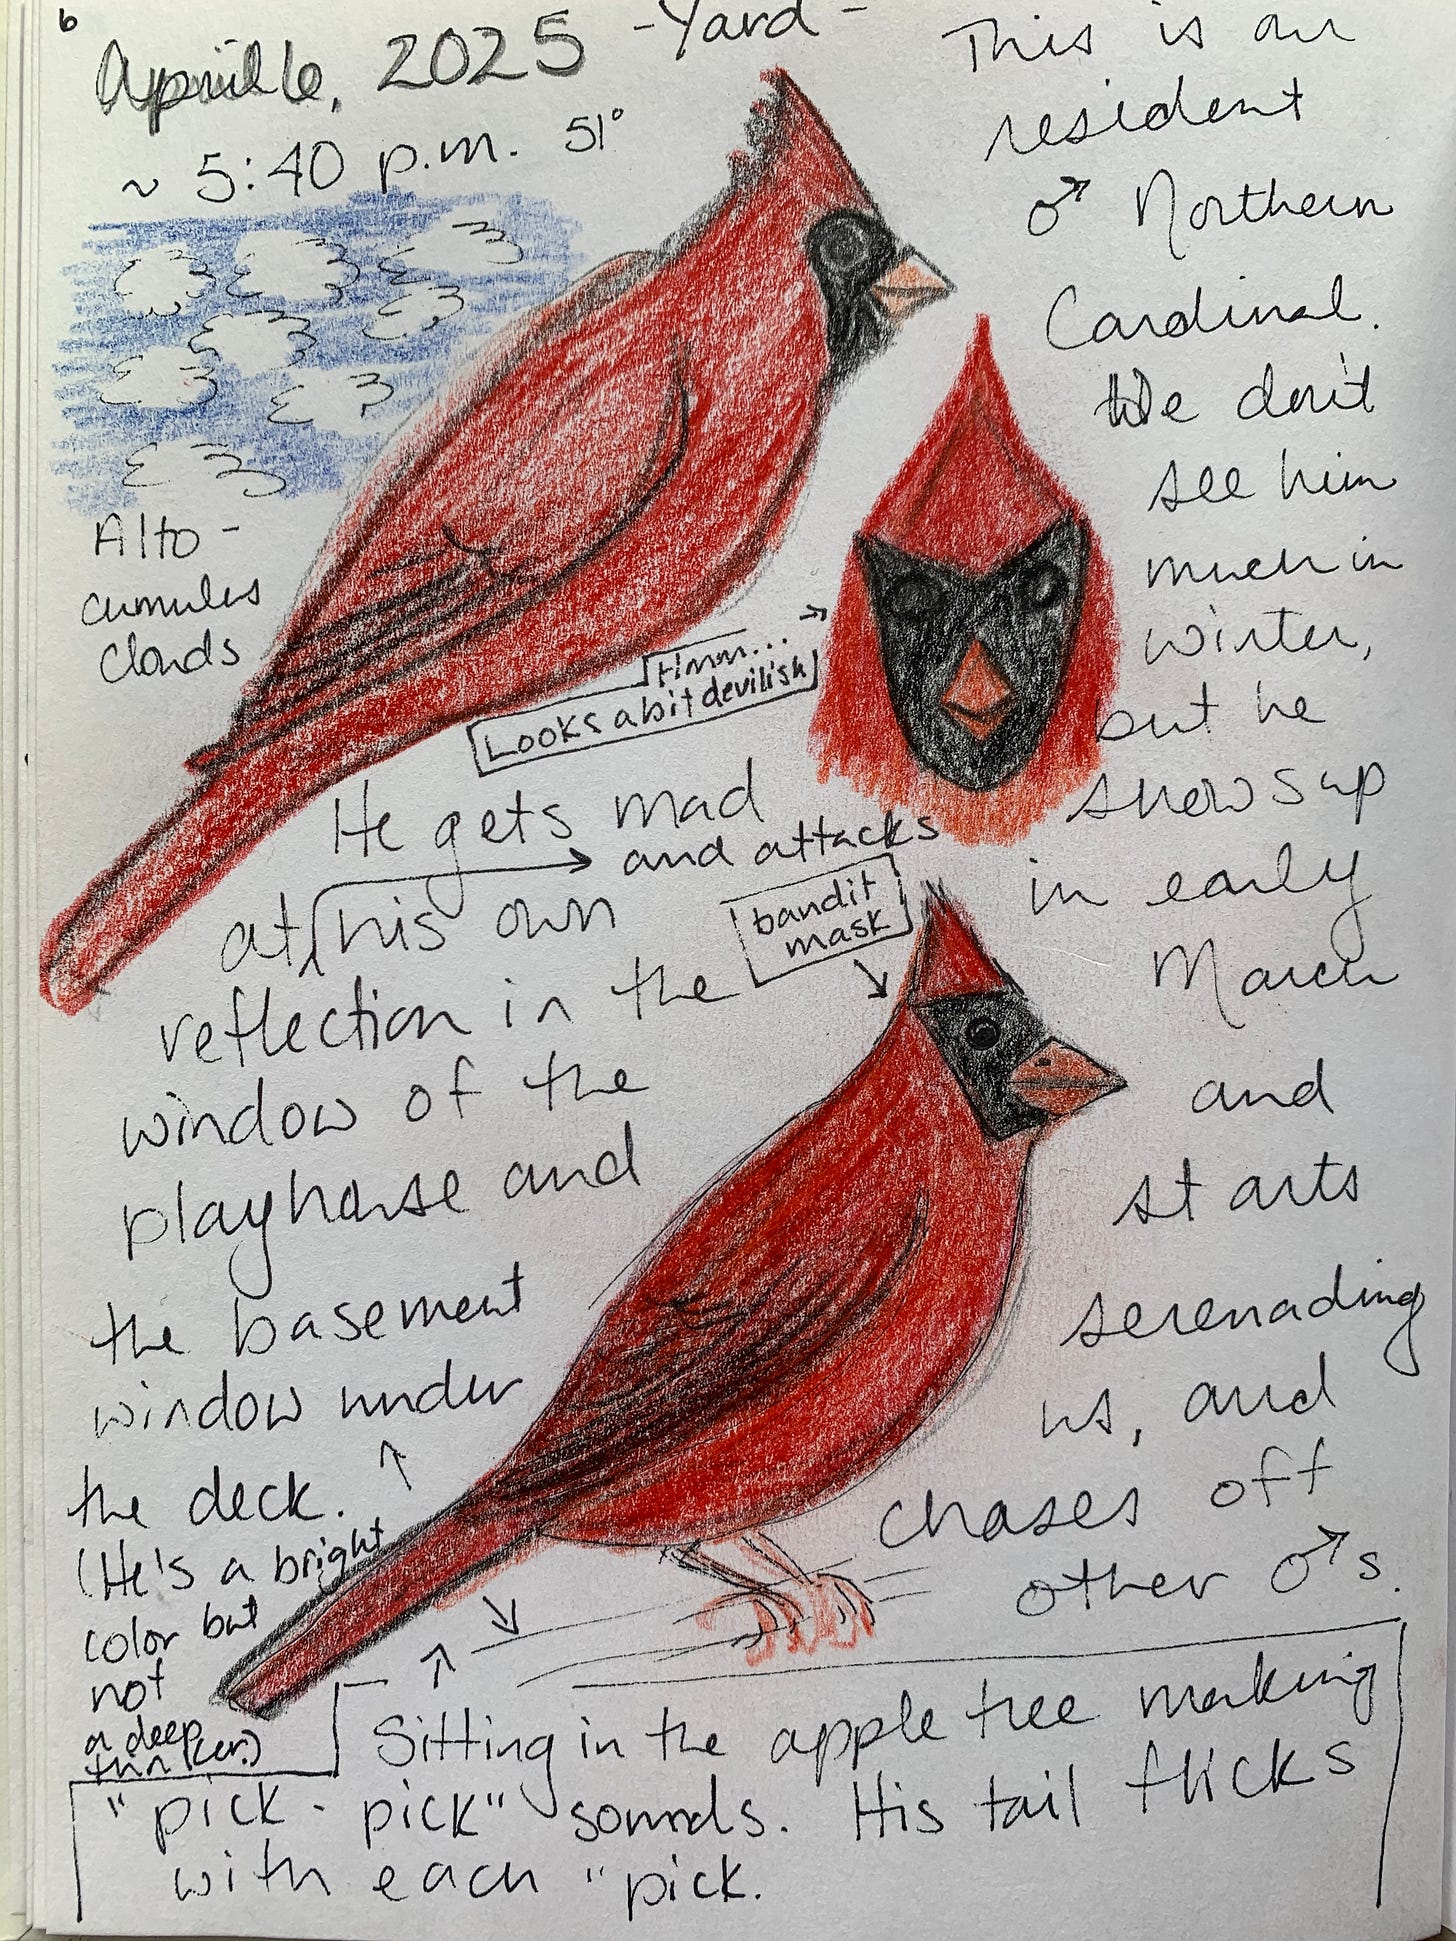 6
April 6, 2025 - Yard -
~ 5:40 p.m. 51°
Alto-
cumulus
clouds
This is our
resident
♂ Northern
Cardinal.
We don't
see him
much in
winter,
but he
shows up
in early
March
and
starts
serenading
us, and
chases off
other ♂s.
Hmm...
Looks a bit devilish
He gets mad
and attacks
at his own
reflection in the
window of the
playhouse and
the basement
window under
the deck.
(He's a bright
color but
not
a deep
thinker.)
bandit
mask
Sitting in the apple tree making
"pick - pick" sounds. His tail flicks
with each "pick.